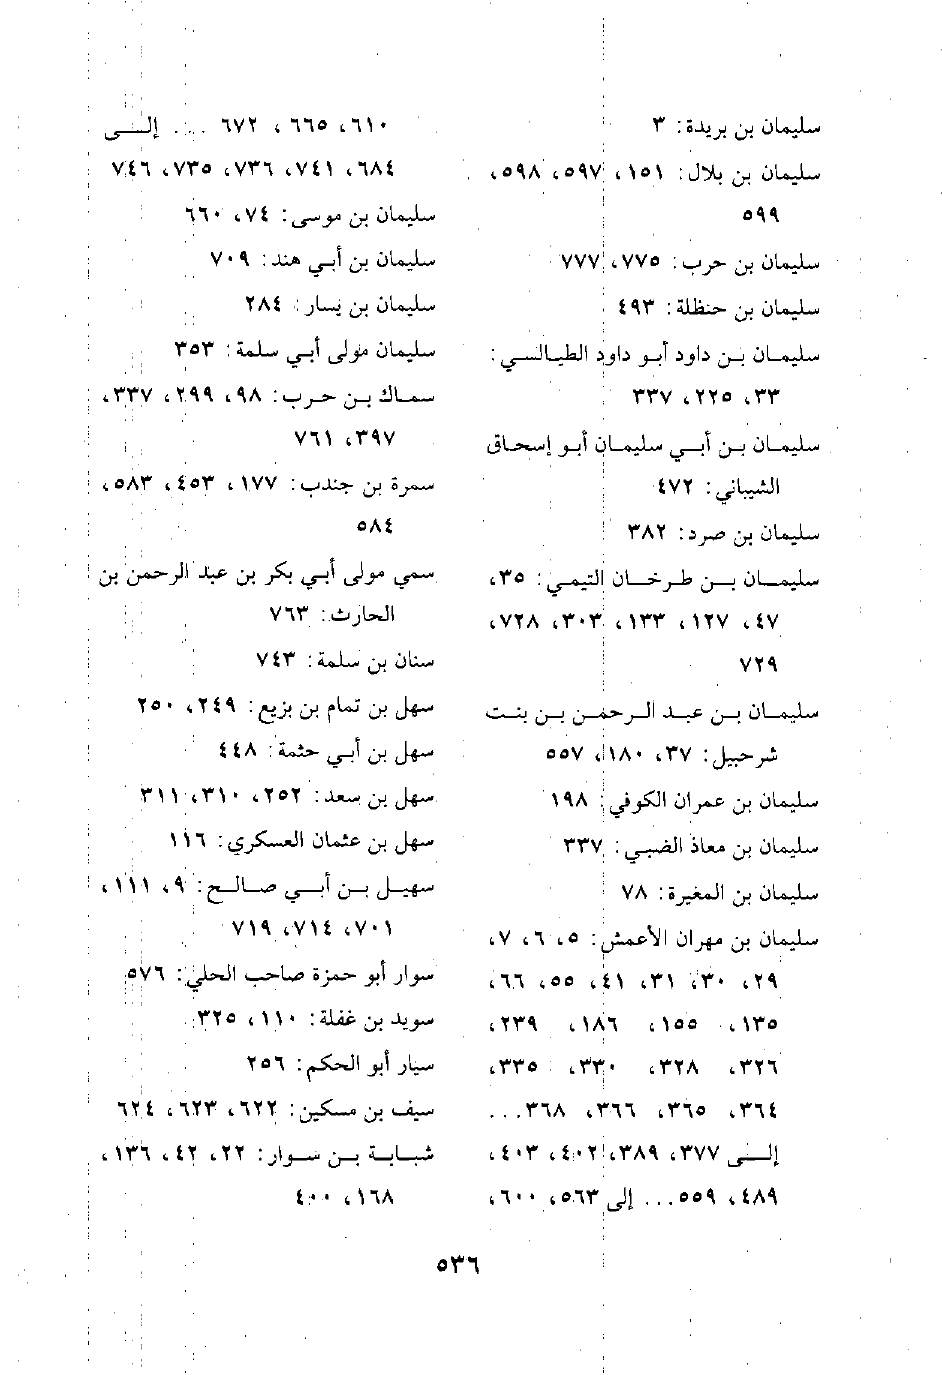 سليمان بن بريدة: ٣
سليمان بن بلال: ١٥١، ٥٩٧، ٥٩٨،
٥٩٩
سليمان بن حرب: ٧٧٥، ٧٧٧
سليمان بن حنظلة: ٤٩٣
سليمان بن داود أبو داود الطيالسي:
٣٣، ٢٢٥، ٣٣٧
سليمان بن أبي سليمان أبو إسحاق
الشيباني: ٤٧٢
سليمان بن صرد: ٣٨٢
سليمان بن طرخان التيمي: ٣٥،
٤٧، ١٢٧، ١٣٣، ٣٠٣، ٧٢٨،
٧٢٩
سليمان بن عبد الرحمن بن بنت
شرحبيل: ٣٧، ١٨٠، ٥٥٧
سليمان بن عمران الكوفي: ١٩٨
سليمان بن معاذ الضبي: ٣٣٧
سليمان بن المغيرة: ٧٨
سليمان بن مهران الأعمش: ٥، ٦، ٧،
٢٩، ٣٠، ٣١، ٤١، ٥٥، ٦٦،
١٣٥، ١٥٥، ١٨٦، ٢٣٩،
٣٢٦، ٣٢٨، ٣٣٠، ٣٣٥،
٣٦٤، ٣٦٥، ٣٦٦، ٣٦٨...
إلى ٣٧٧، ٣٨٩، ٤٠٢، ٤٠٣،
٤٨٩، ٥٥٩... إلى ٥٦٣، ٦٠٠،
٦١٠، ٦٦٥، ٦٧٢ ... إلى
٦٨٤، ٧٤١، ٧٣٦، ٧٣٥، ٧٤٦
سليمان بن موسى: ٧٤، ٦٦٠
سليمان بن أبي هند: ٧٠٩
سليمان بن يسار: ٢٨٤
سليمان مولى أبي سلمة: ٣٥٣
سماك بن حرب: ٩٨، ٢٩٩، ٣٣٧،
٣٩٧، ٧٦١
سمرة بن جندب: ١٧٧، ٤٥٣، ٥٨٣،
٥٨٤
سمي مولى أبي بكر بن عبد الرحمن بن
الحارث: ٧٦٣
سنان بن سلمة: ٧٤٣
سهل بن تمام بن بزيع: ٢٤٩، ٢٥٠
سهل بن أبي حثمة: ٤٤٨
سهل بن سعد: ٢٥٢، ٣١٠، ٣١١
سهل بن عثمان العسكري: ١١٦
سهيل بن أبي صالح: ٩، ١١١،
٧٠١، ٧١٤، ٧١٩
سوار أبو حمزة صاحب الحلي: ٥٧٦
سويد بن غفلة: ١١٠، ٣٢٥
سيار أبو الحكم: ٢٥٦
سيف بن مسكين: ٦٢٢، ٦٢٣، ٦٢٤
شبابة بن سوار: ٢٢، ٤٢، ١٣٦،
١٦٨، ٤٠٠
٥٣٦